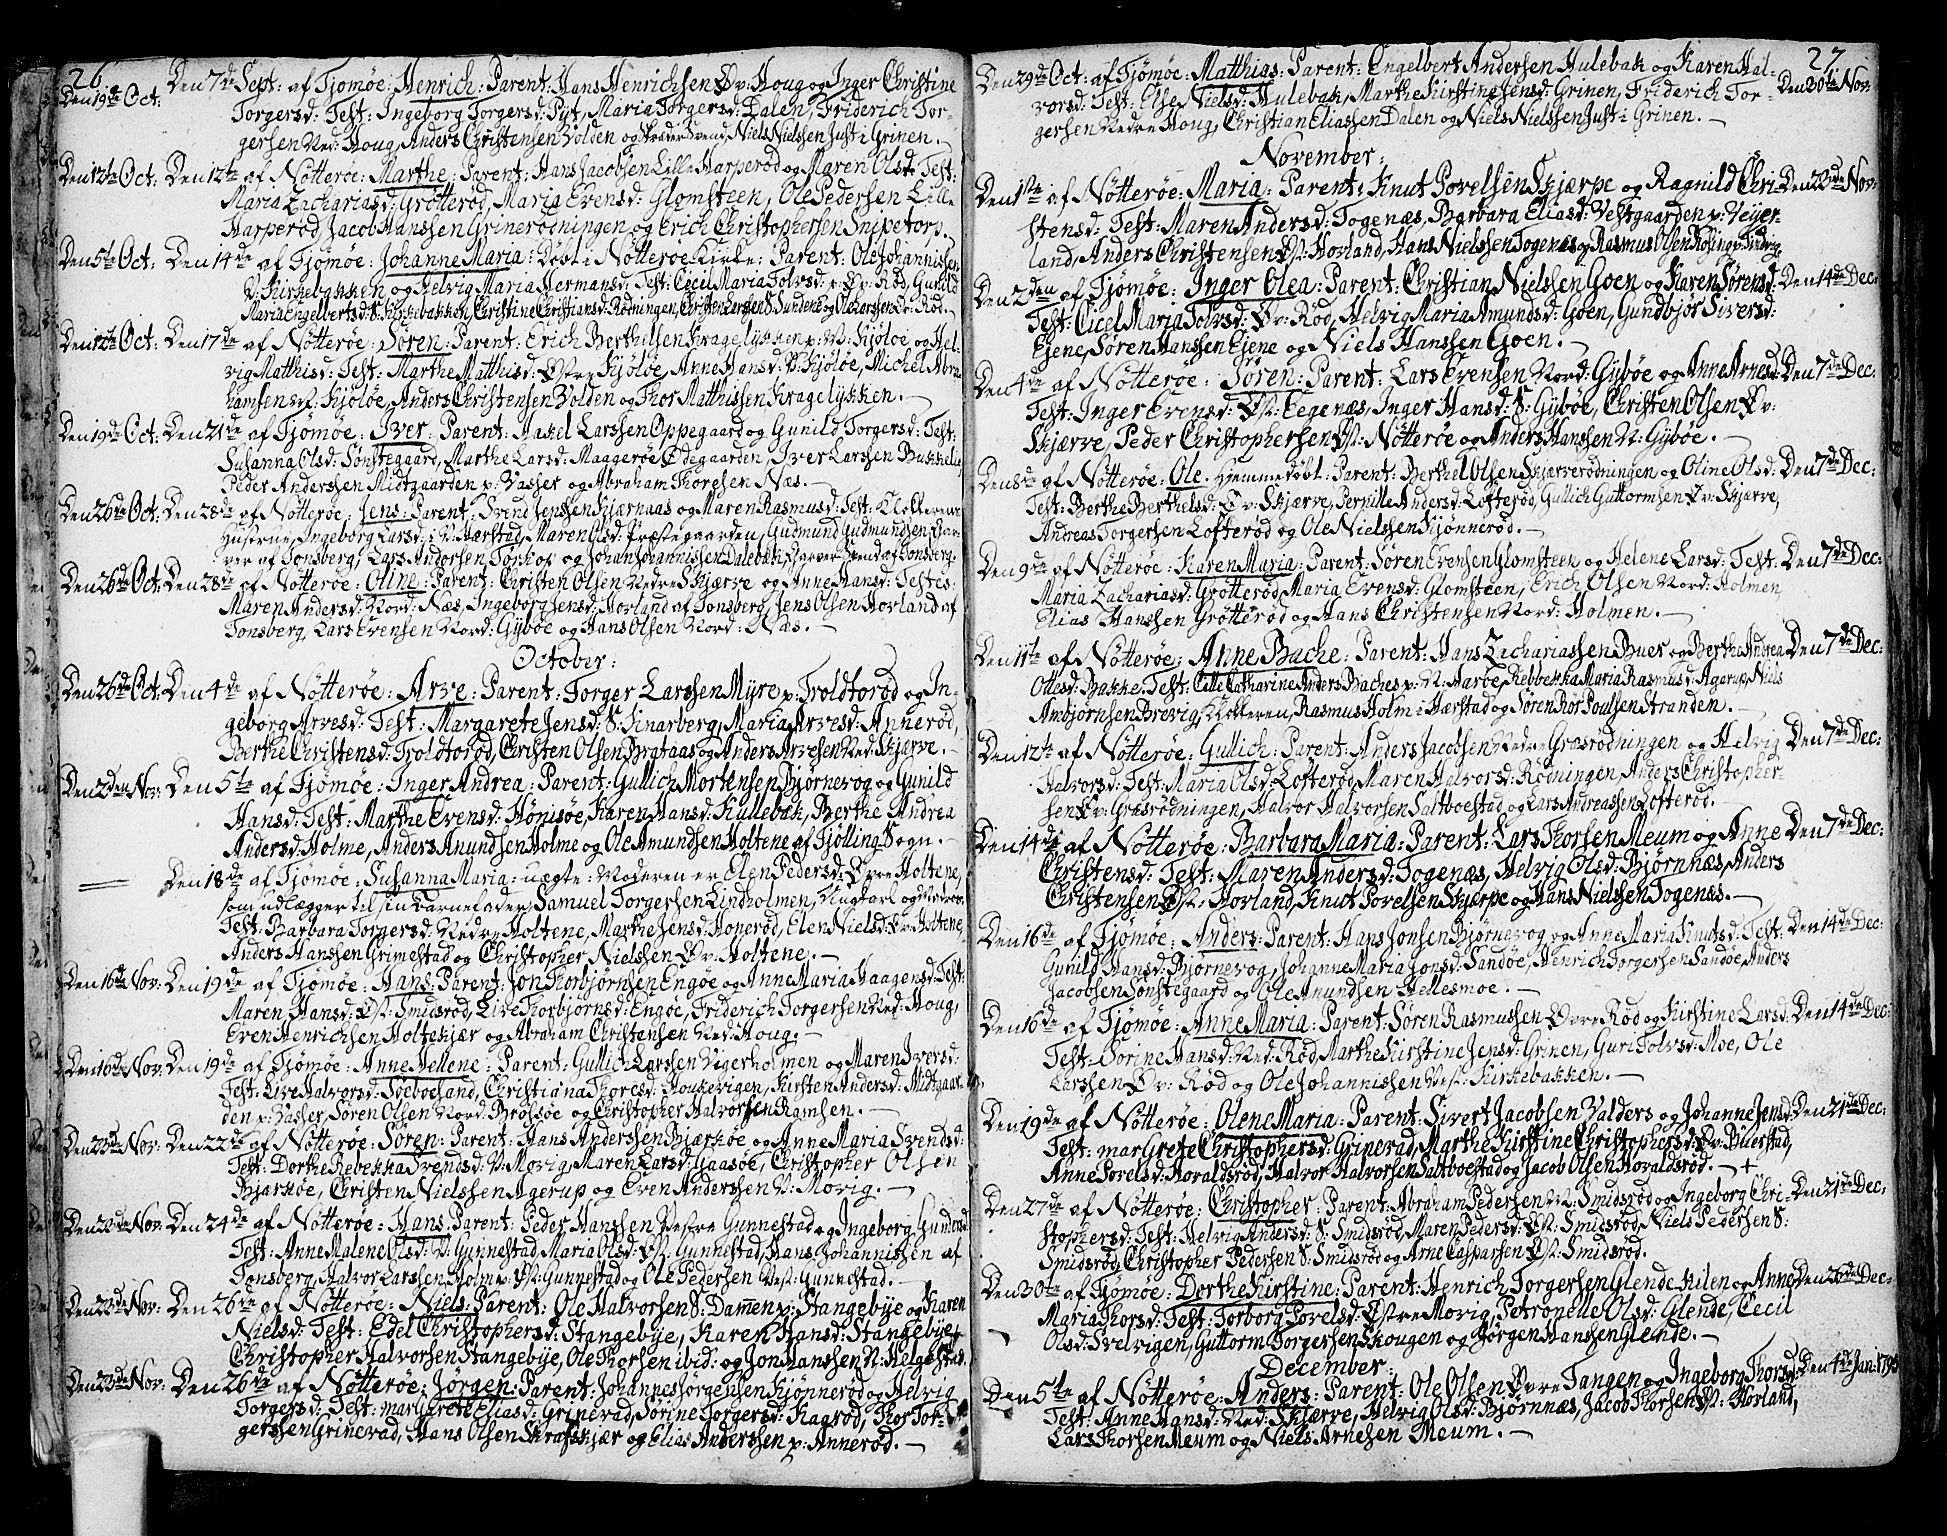 26
Den 19de Oct: Den 7de Sept. af Tjømøe: Henrich: Parent: Hans Henrichsen Øv: Houg og Inger Christine
Torgersd: Test: Ingeborg Torgersd: Pyt, Maria Torgersd: Dalen, Friderich Tor-
gersen Ned: Houg, Anders Christensen Volden og Skrædersvend Niels Nielssen Just i Grinen.
Den 12te Oct: Den 12te af Nøtterøe: Marthe: Parent: Hans Jacobsen Lille Harperød og Maren Olsd: Test:
Maria Zachariasd: Grøtterød, Maria Evensd: Glomsteen, Ole Pedersen Lille
Harperød, Jacob Hanssen Grinerødningen og Erich Christophersen Snipetorp.
Den 5te Oct: Den 14de af Tjømøe: Johanne Maria: Døbt i Nøtterøe Kirke: Parent: Ole Johannissen
V: Kirkebakken og Helvig Maria Hermansd: Test: Cecil Maria Tolvsd: Øv: Rød, Gunild
Maria Engelbertsd: S: Kirkebakken, Christine Christiansd: Rødningen, Christen Larssen S: Sundene og Ole Larssen Øv: Rød.
Den 12te Oct: Den 17de af Nøtterøe: Søren: Parent: Erich Berthelsen Kragelykken p: V: Kjøløe og Hel-
vig Matthisd: Test: Marthe Matthisd: Østre Kjøløe, Anne Hansd: V: Kjøløe, Michel Abra-
hamsen V: Kjøløe, Anders Christensen Volden og Thor Matthissen Kragelykken.
Den 19de Oct: Den 21de af Tjømøe: Iver: Parent: Axel Larssen Oppegaard og Gunild Torgersd: Test:
Susanna Olsd: Sønstegaard, Marthe Larsd: Maagerøe Ødegaarden, Iver Larssen Bukkelie
Peder Anderssen Midtgaarden p: Vasser og Abraham Thoresen Næs.
Den 26de Oct: Den 28de af Nøtterøe: Jens: Parent: Svend Jenssen Kjærnaas og Maren Rasmusd: Test: Klokkerens
Hustrue, Ingeborg Larsd: i V: Hærstad, Maren Olsd: Præstegaarden, Gudmund Gudmundsen Gar-
ver af Tonsberg, Lars Andersen Torkop og Johan Johannissen Dalebak Garver Svend af Tonsberg.
Den 26de Oct: Den 28de af Nøtterøe: Oline: Parent: Christen Olsen Nedre Skjærve og Anne Hansd: Testes:
Maren Andersd: Nord: Næs, Ingeborg Jensd: Horland af Tonsberg, Jens Olsen Horland af
Tonsberg, Lars Evensen Nord: Gybøe og Hans Olsen Nord: Næs.
October:
Den 26de Oct: Den 4de af Nøtterøe: Arve: Parent: Torger Larssen Myre p: Troldtorød og In-
geborg Arvesd: Test: Margarete Jensd: S: Tinarberg, Maria Arvesd: Annerød,
Berthe Christensd: Troldtorød, Christen Olsen Brataas og Anders Arvesen Ned: Skjærve.
Den 2den Nov: Den 5te af Tjømøe: Inger Andrea: Parent: Gullich Mortensen Bjørnevog og Gunild
Hansd: Test: Marthe Evensd: Hønisøe, Karen Hansd: Kullebak, Berthe Andrea
Andersd: Holme, Anders Anundsen Holme og Ole Amundsen Holtene af Tjølling Sogn.
Den 18de af Tjømøe: Susanna Maria: uægte: Moderen er Elen Pedersd: Øvre Holtene,
som udlægger til sin Barnefader Samuel Torgersen Lindholmen, Ungkarl og Matros.
Test: Barbara Torgersd: Nedre Holtene, Marthe Jensd: Honerød, Elen Nielsd: Øv: Holtene,
Anders Hanssen Grimestad og Christopher Nielssen Øv: Holtene.
Den 16de Nov: Den 19de af Tjømøe: Hans: Parent: Jon Thorbjørnsen Engøe og Anne Maria Haagensd: Test:
Maren Hansd: Øst: Smidsrød, Live Thorbjørnsd: Engøe, Friderich Torgersen Ned: Houg,
Even Henrichsen Holtekjær og Abraham Christensen Ned: Houg.
Den 16de Nov: Den 19de af Tjømøe: Anne Hellene: Parent: Gullich Larssen Vegerholmen og Maren Iversd:
Test: Live Halvorsd: Soeboeland, Christiana Thoresd: Houkevigen, Kirsten Andersd: Midtgaar-
den p: Vasser, Søren Olsen Nord: Brøtsøe og Christopher Halvorsen Ramsen.
Den 23de Nov: Den 22de af Nøtterøe: Søren: Parent: Hans Anderssen Bjærkøe og Anne Maria Svendsd:
Test: Dorthe Rebekka Svendsd: V: Movig, Maren Larsd: Gaasøe, Christopher Olsen
Bjærkøe, Christen Nielssen Agerup og Even Anderssen V: Movig.
Den 20de Nov: Den 24de af Nøtterøe: Hans: Parent: Peder Hanssen Vestre Gunnestad og Ingeborg Gundersd:
Test: Anne Malene Olsd: V: Gunnestad, Maria Olsd: Øst: Gunnestad, Hans Johannissen af
Tonsberg, Halvor Larssen Holm p: Øst: Gunnestad og Ole Pedersen Vest: Gunnestad.
Den 23de Nov: Den 26de af Nøtterøe: Niels: Parent: Ole Halvorsen S: Dammen p: Stangebye og Karen
Nielsd: Test: Edel Christophersd: Stangebye, Karen Hansd: Stangebye,
Christopher Halvorsen Stangebye, Ole Thorsen ibid: og Jon Hanssen V: Helgestad.
Den 23de Nov: Den 26de af Nøtterøe: Jørgen: Parent: Johannes Jørgensen Kjønnerød og Helvig
Torgersd: Test: Margarete Eliasd: Grinerad, Sørine Torgersd: Kagrød, Thor Tor-
gerssen Grinerad, Hans Olsen Skrafskjær og Elias Anderssen p: Annerød.
27
Den 29de Oct: af Tjømøe: Matthias: Parent: Engelbert Andersen Hulebak og Karen Hal- Den 30te Nov:
vorsd: Test: Else Nielsd: Hulebak, Marthe Kirstine Jensd: Grinen, Friderich Tor-
gersen Nedre Houg, Christian Eliassen Dalen og Niels Nielssen Just i Grinen.
November:
Den 1ste af Nøtterøe: Maria: Parent: Knut Povelsen Skjærpe og Ragnild Chri- Den 23de Nov:
stensd: Test: Maren Andersd: Togenæs, Barbara Eliasd: Vestgaarden p: Vejer-
land, Anders Christensen Øst: Hovland, Hans Nielssen Togenæs og Rasmus Olsen
Den 2den af Tjømøe: Inger Olea: Parent: Christian Nielssen Goen og Karen Sørensd: Den 14de Dec:
Test: Cicel Maria Tolvsd: Øv: Rød, Helvig Maria Amundsd: Goen, Gundbjør Siversd:
Ejene, Søren Hanssen Ejene og Niels Hanssen Goen.
Den 4de af Nøtterøe: Søren: Parent: Lars Evensen Nord: Gybøe og Anne Arnesd: Den 7de Dec:
Test: Inger Evensd: Øst: Eegenæs, Inger Hansd: S: Gybøe, Christen Olsen Øv:
Skjærve, Peder Christophersen Øst: Nøtterøe og Anders Hanssen N: Gybøe.
Den 8de af Nøtterøe: Ole: hjemmedøbt: Parent: Berthel Olsen Skjærverødningen og Oline Olsd: Den 7de Dec:
Test: Berthe Berthelsd: Øv: Skjærve, Pernille Andersd: Lofterød, Gullich Guttormsen Øv: Skjærve,
Andreas Torgersen Lofterød og Ole Nielssen Kjønnerød.
Den 9de af Nøtterøe: Karen Maria: Parent: Søren Evensen Glomsteen og Helene Larsd: Test: Den 7de Dec:
Maria Zachariasd: Grøtterød, Maria Evensd: Glomsteen, Erich Olsen Nord: Holmen,
Elias Hanssen Grøtterød og Hans Christensen Nord: Holmen.
Den 11te af Nøtterøe: Anne Bache: Parent: Hans Zachariassen Buer og Berthe Andrea Den 7de Dec:
Ottesd: Bakke. Test: Cille Catharine Anders Baches p: N: Aarøe, Rebbekka Maria Rasmusd: Agerup, Niels
Ambjørnsen Brevig, Klokkeren, Rasmus Holm i Hærstad og Søren Rør Poulsen Stranden.
Den 12te af Nøtterøe: Gullich: Parent: Anders Jacobsen Nedre Græsrødningen og Helvig Den 7de Dec:
Halvorsd: Test: Maria Olsd: Lofterød, Maren Halvorsd: Rødningen, Anders Christopher-
sen Øv: Græsrødningen, Halvor Halvorsen Saltboestad og Lars Andreassen Lofterød.
Den 14de af Nøtterøe: Barbara Maria: Parent: Lars Thorsen Meum og Anne Den 7de Dec:
Christensd: Test: Maren Andersd: Togenæs, Helvig Olsd: Bjørnnæs, Anders
Christensen Øst: Horland, Knut Povelsen Skjærpe og Hans Nielssen Togenæs.
Den 16de af Tjømøe: Anders: Parent: Hans Jonsen Bjørnevog og Anne Maria Knutsd: Test: Den 14de Dec:
Gunild Hansd: Bjørnevog, Johanne Maria Jonsd: Sandøe, Henrich Torgersen Sandøe, Anders
Jacobsen Sønstegaard og Ole Anundsen Hellesmoe.
Den 16de af Tjømøe: Anne Maria: Parent: Søren Rasmussen Øvre Rød og Kirstine Larsd: Den 14de Dec:
Test: Sorine Hansd: Ned: Rød, Marthe Kirstine Jensd: Grinen, Guri Tolvsd: Moe, Ole
Larssen Øv: Rød og Ole Johannissen Vest: Kirkebakken.
Den 19de af Nøtterøe: Olene Maria: Parent: Sivert Jacobsen Valders og Johanne Jensd: Den 21de Dec:
Test: Margrete Christophersd: Grinerad, Marthe Kirstine Christophersd: Øv: Buerstad,
Anne Sorelsd: Horaldsrød, Halvor Halvorsen Saltboestad og Jacob Olsen Horaldsrød. +
Den 27de af Nøtterøe: Christopher: Parent: Abraham Pedersen N: Smidsrød og Ingeborg Chri- Den 21de Dec:
stophersd: Test: Helvig Andersd: S: Smidsrød, Maren Pedersd: Øst: Smidsrød, Niels Pedersen S:
Smidsrød, Christopher Pedersen S: Smidsrød og Arne Casparsen Øst: Smidsrød.
Den 30te af Tjømøe: Dorthe Kirstine: Parent: Henrich Torgersen Glende Kilen og Anne Den 26de Dec:
Maria Thorsd: Test: Torborg Sorelsd: Østre Movig, Petronelle Olsd: Glende, Cecil
Olsd: Svelvigen, Guttorm Torgersen Skougen og Jørgen Hanssen Glende.
December:
Den 5te af Nøtterøe: Anders: Parent: Ole Olsen Øvre Tangen og Ingeborg Thorsd: Den 4de Jan: 1795
Test: Anne Hansd: Ned: Skjærve, Helvig Olsd: Bjørnnæs, Jacob Thorsen Øst: Horland,
Lars Thorsen Meum og Niels Arnesen Meum.